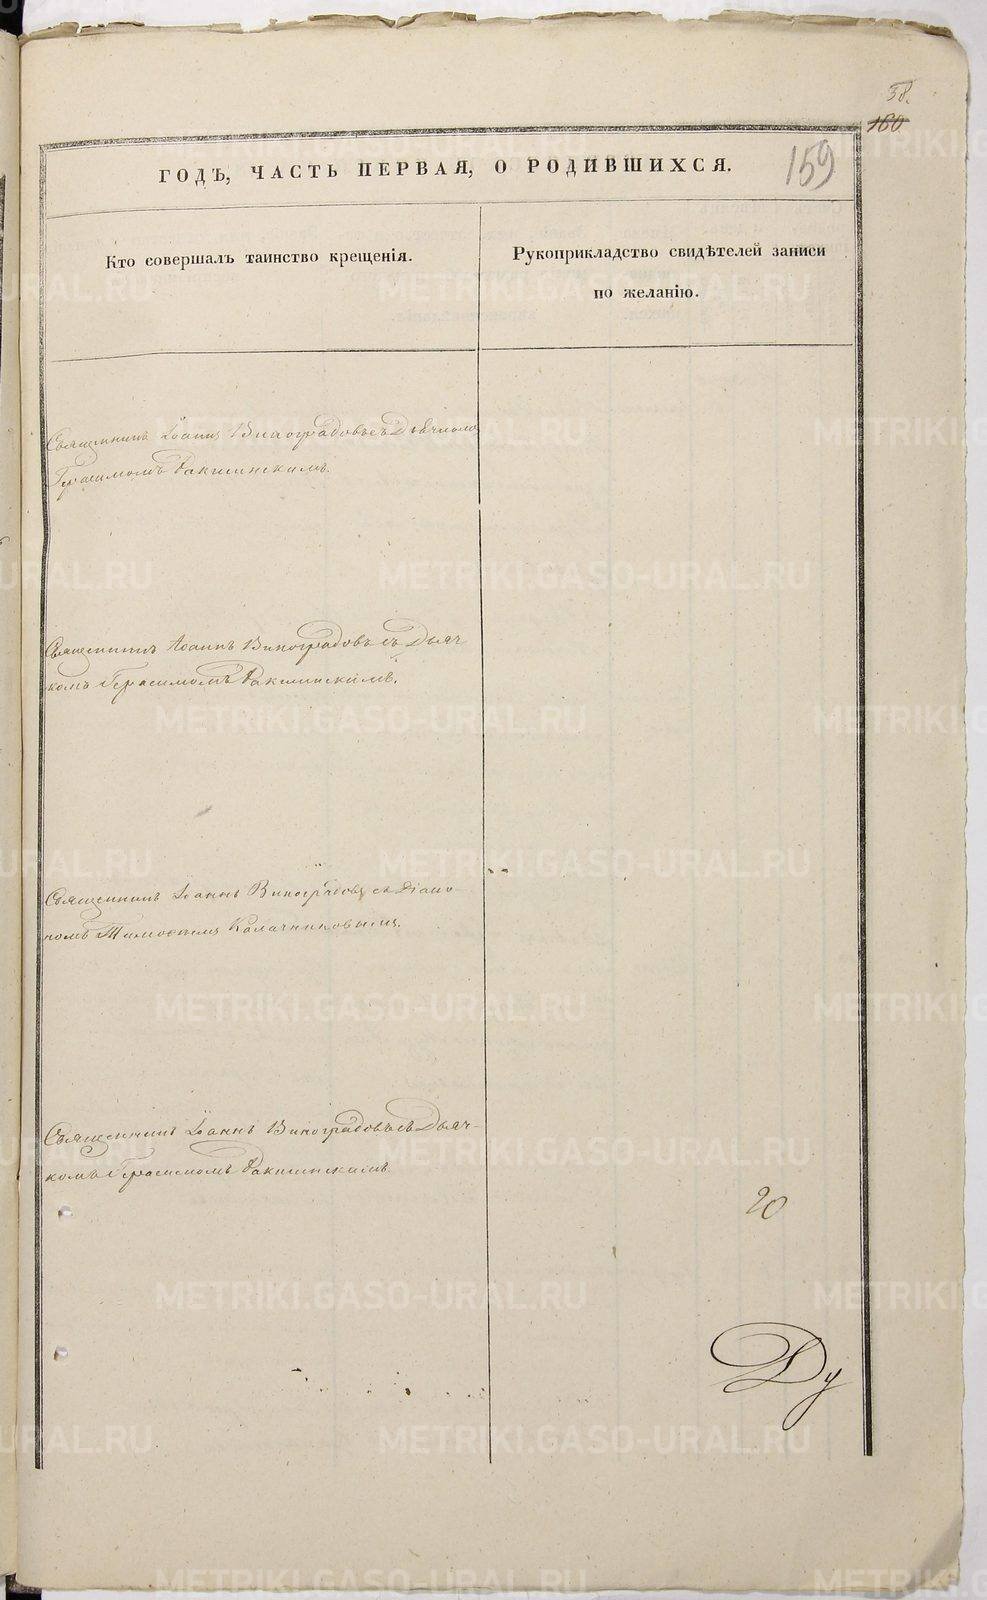 38.
160
159
ГОДЪ, ЧАСТЬ ПЕРВАЯ, О РОДИВШИХСЯ.
Кто совершалъ таинство крещенія.
Рукоприкладство свидѣтелей записи
по желанію.
Священникъ Іоаннъ Виноградовъ съ Дьячкомъ
Герасимомъ
Священникъ Іоаннъ Виноградовъ съ Дьяч
комъ Герасимомъ
Священникъ Іоаннъ Виноградовъ съ Діако
номъ Калачниковымъ.
Священникъ Іоаннъ Виноградовъ съ Дьяч-
комъ Герасимомъ
20
Ду
METRIKI.GASO-URAL.RU